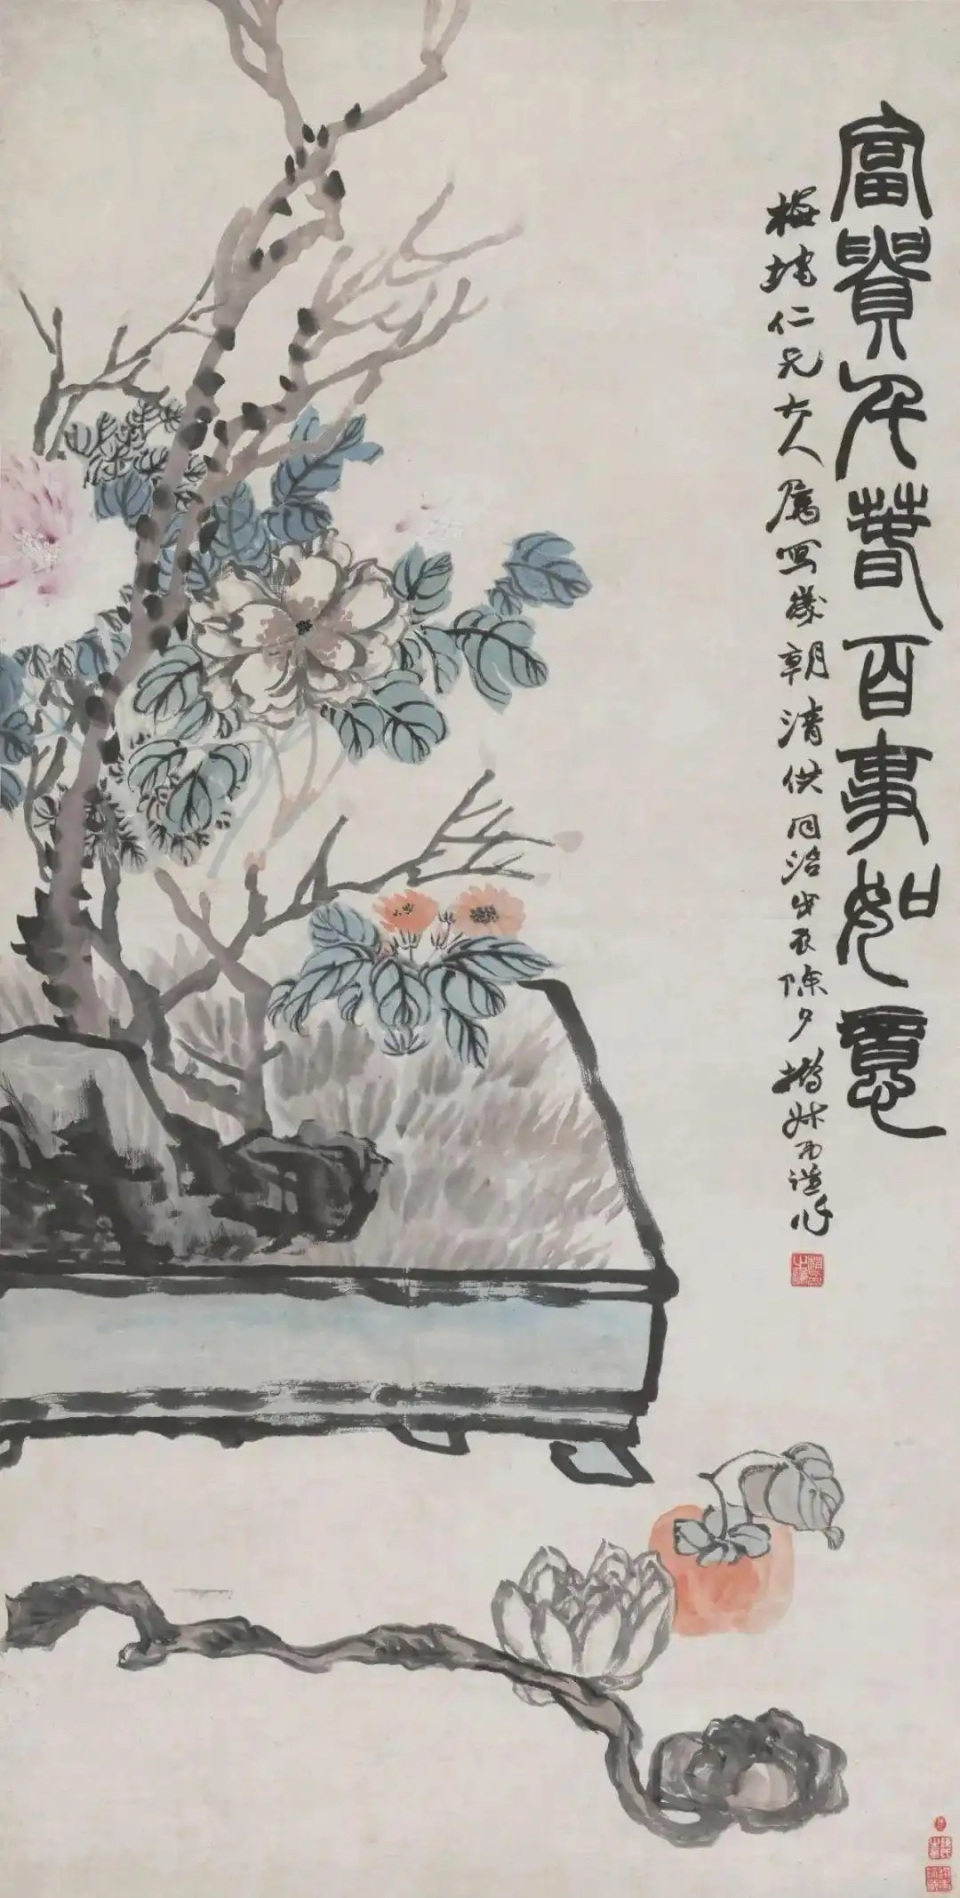 富貴千春百事如意
梅仁兄大人屬寫歲朝清供同治戊辰除夕撝叔弟謙作